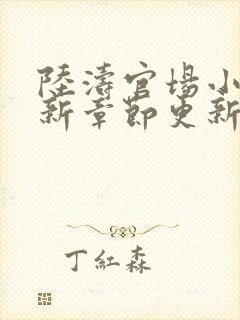 陸濤官場小
新章節更新
丁紅森